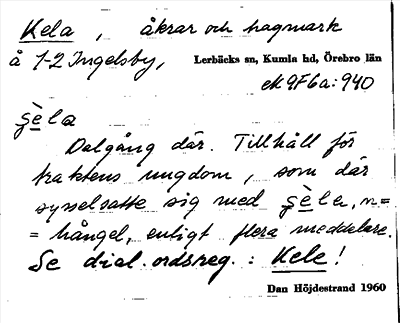 Kela, åkrar och hagmark
å 1-2 Ingelsby, Lerbäcks sn, Kumla hd, Örebro län
ek 9F6a:940
ʂèla
Dalgång där. Tillhåll för
traktens ungdom, som där
sysselsatte sig med ʂèla, n=
= hångel, enligt flera meddelare.
Se dial.ordsreg.: Kele!
Dan Höjdestrand 1960